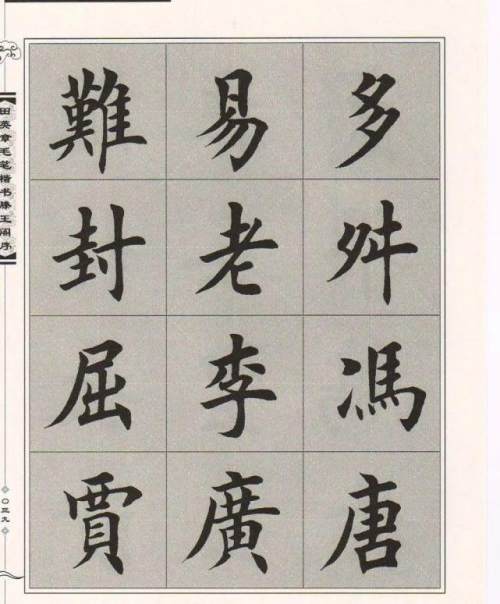 多舛馮唐
易老李廣
難封屈賈
【田英章毛笔楷书滕王阁序】
〇三九